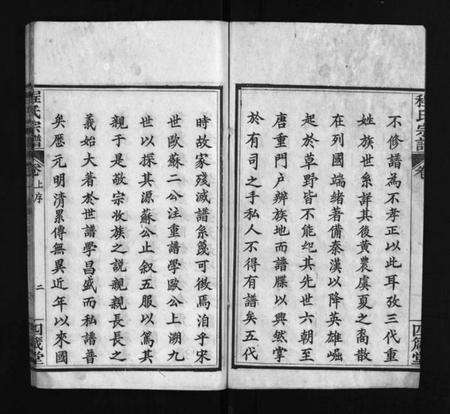 程氏宗譜
卷
不修譜為不孝正以此耳攷三代重
姓族世系詳其後黃農虞夏之裔散
在列國端緒著備秦漢以降英雄崛
起於草野皆不能紀其先世六朝至
唐重門户辨族地而譜牒以興然當
於有司之手私人不得有譜矣五代
四箴堂
時故家殘減譜系蔑可徵焉洎乎宋
世歐蘇二公注重譜學歐公上溯九
世以探其源蘇公止叙五服以篤其
親于是敬宗收族之說親親長長之
義始大著於世譜學昌盛而私譜普
矣歷元明清累傳無異近年以來國
程氏宗譜
卷上序
二
四箴堂